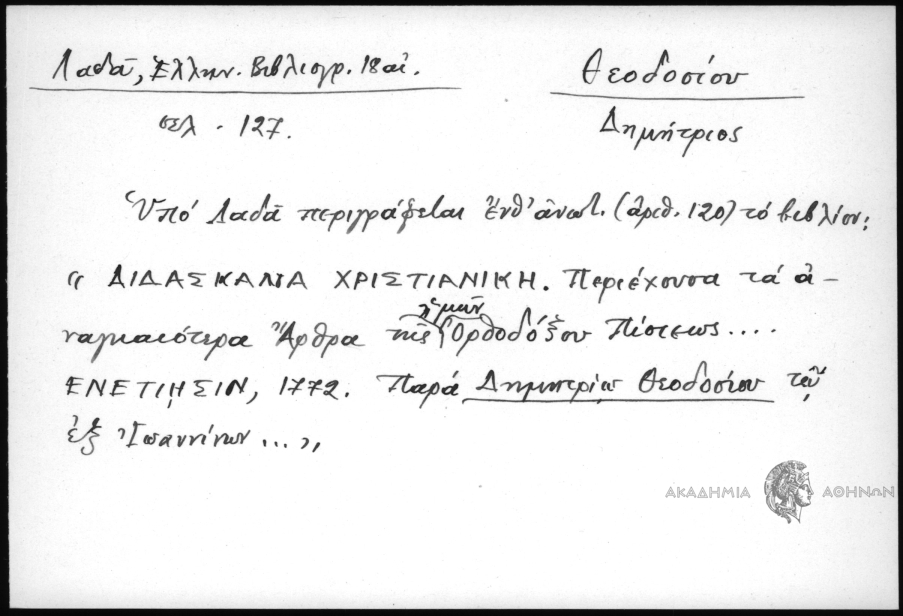 Λαδᾶ, Ἑλλην. Βιβλιογρ. 18 αἰ.
Θεοδοσίου
σελ. 127.
Δημήτριος
Ὑπό Λαδᾶ περιγράφεται ἐνθ' ἀνωτ. (ἀριθ. 120) τό βιβλίον:
« ΔΙΔΑΣΚΑΛΙΑ ΧΡΙΣΤΙΑΝΙΚΗ. Περιέχουσα τά ἀ-
ναγκαιότερα Ἄρθρα τῆς ἡμῶν Ὀρθοδόξου Πίστεως....
ΕΝΕΤΙῌΣΙΝ, 1772. Παρά Δημητρίῳ Θεοδοσίου τῷ
ἐξ Ἰωαννίνων ...»,
ΑΚΑΔΗΜΙΑ ΑΘΗΝΩΝ